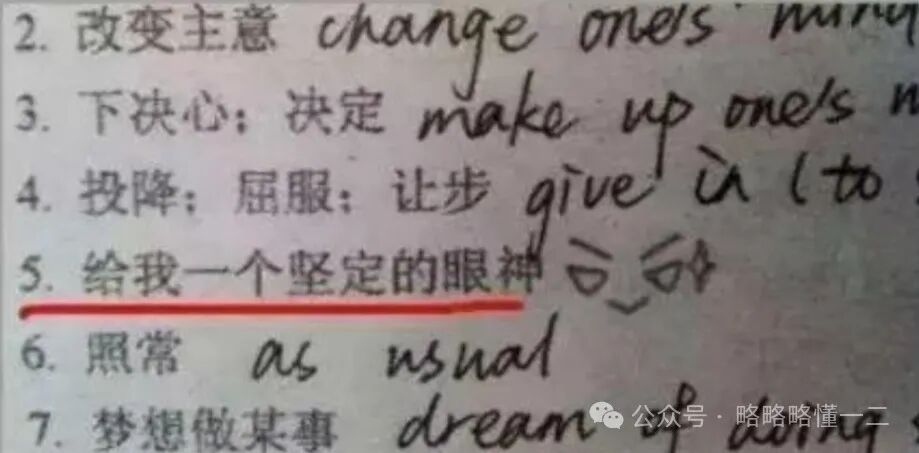 2. 改变主意 change one's mind
3. 下决心；决定 make up one's
4. 投降；屈服；让步 give in (to
5. 给我一个坚定的眼神
6. 照常 as usual
7. 梦想做某事 dream of doing
公众号·略略略懂一二